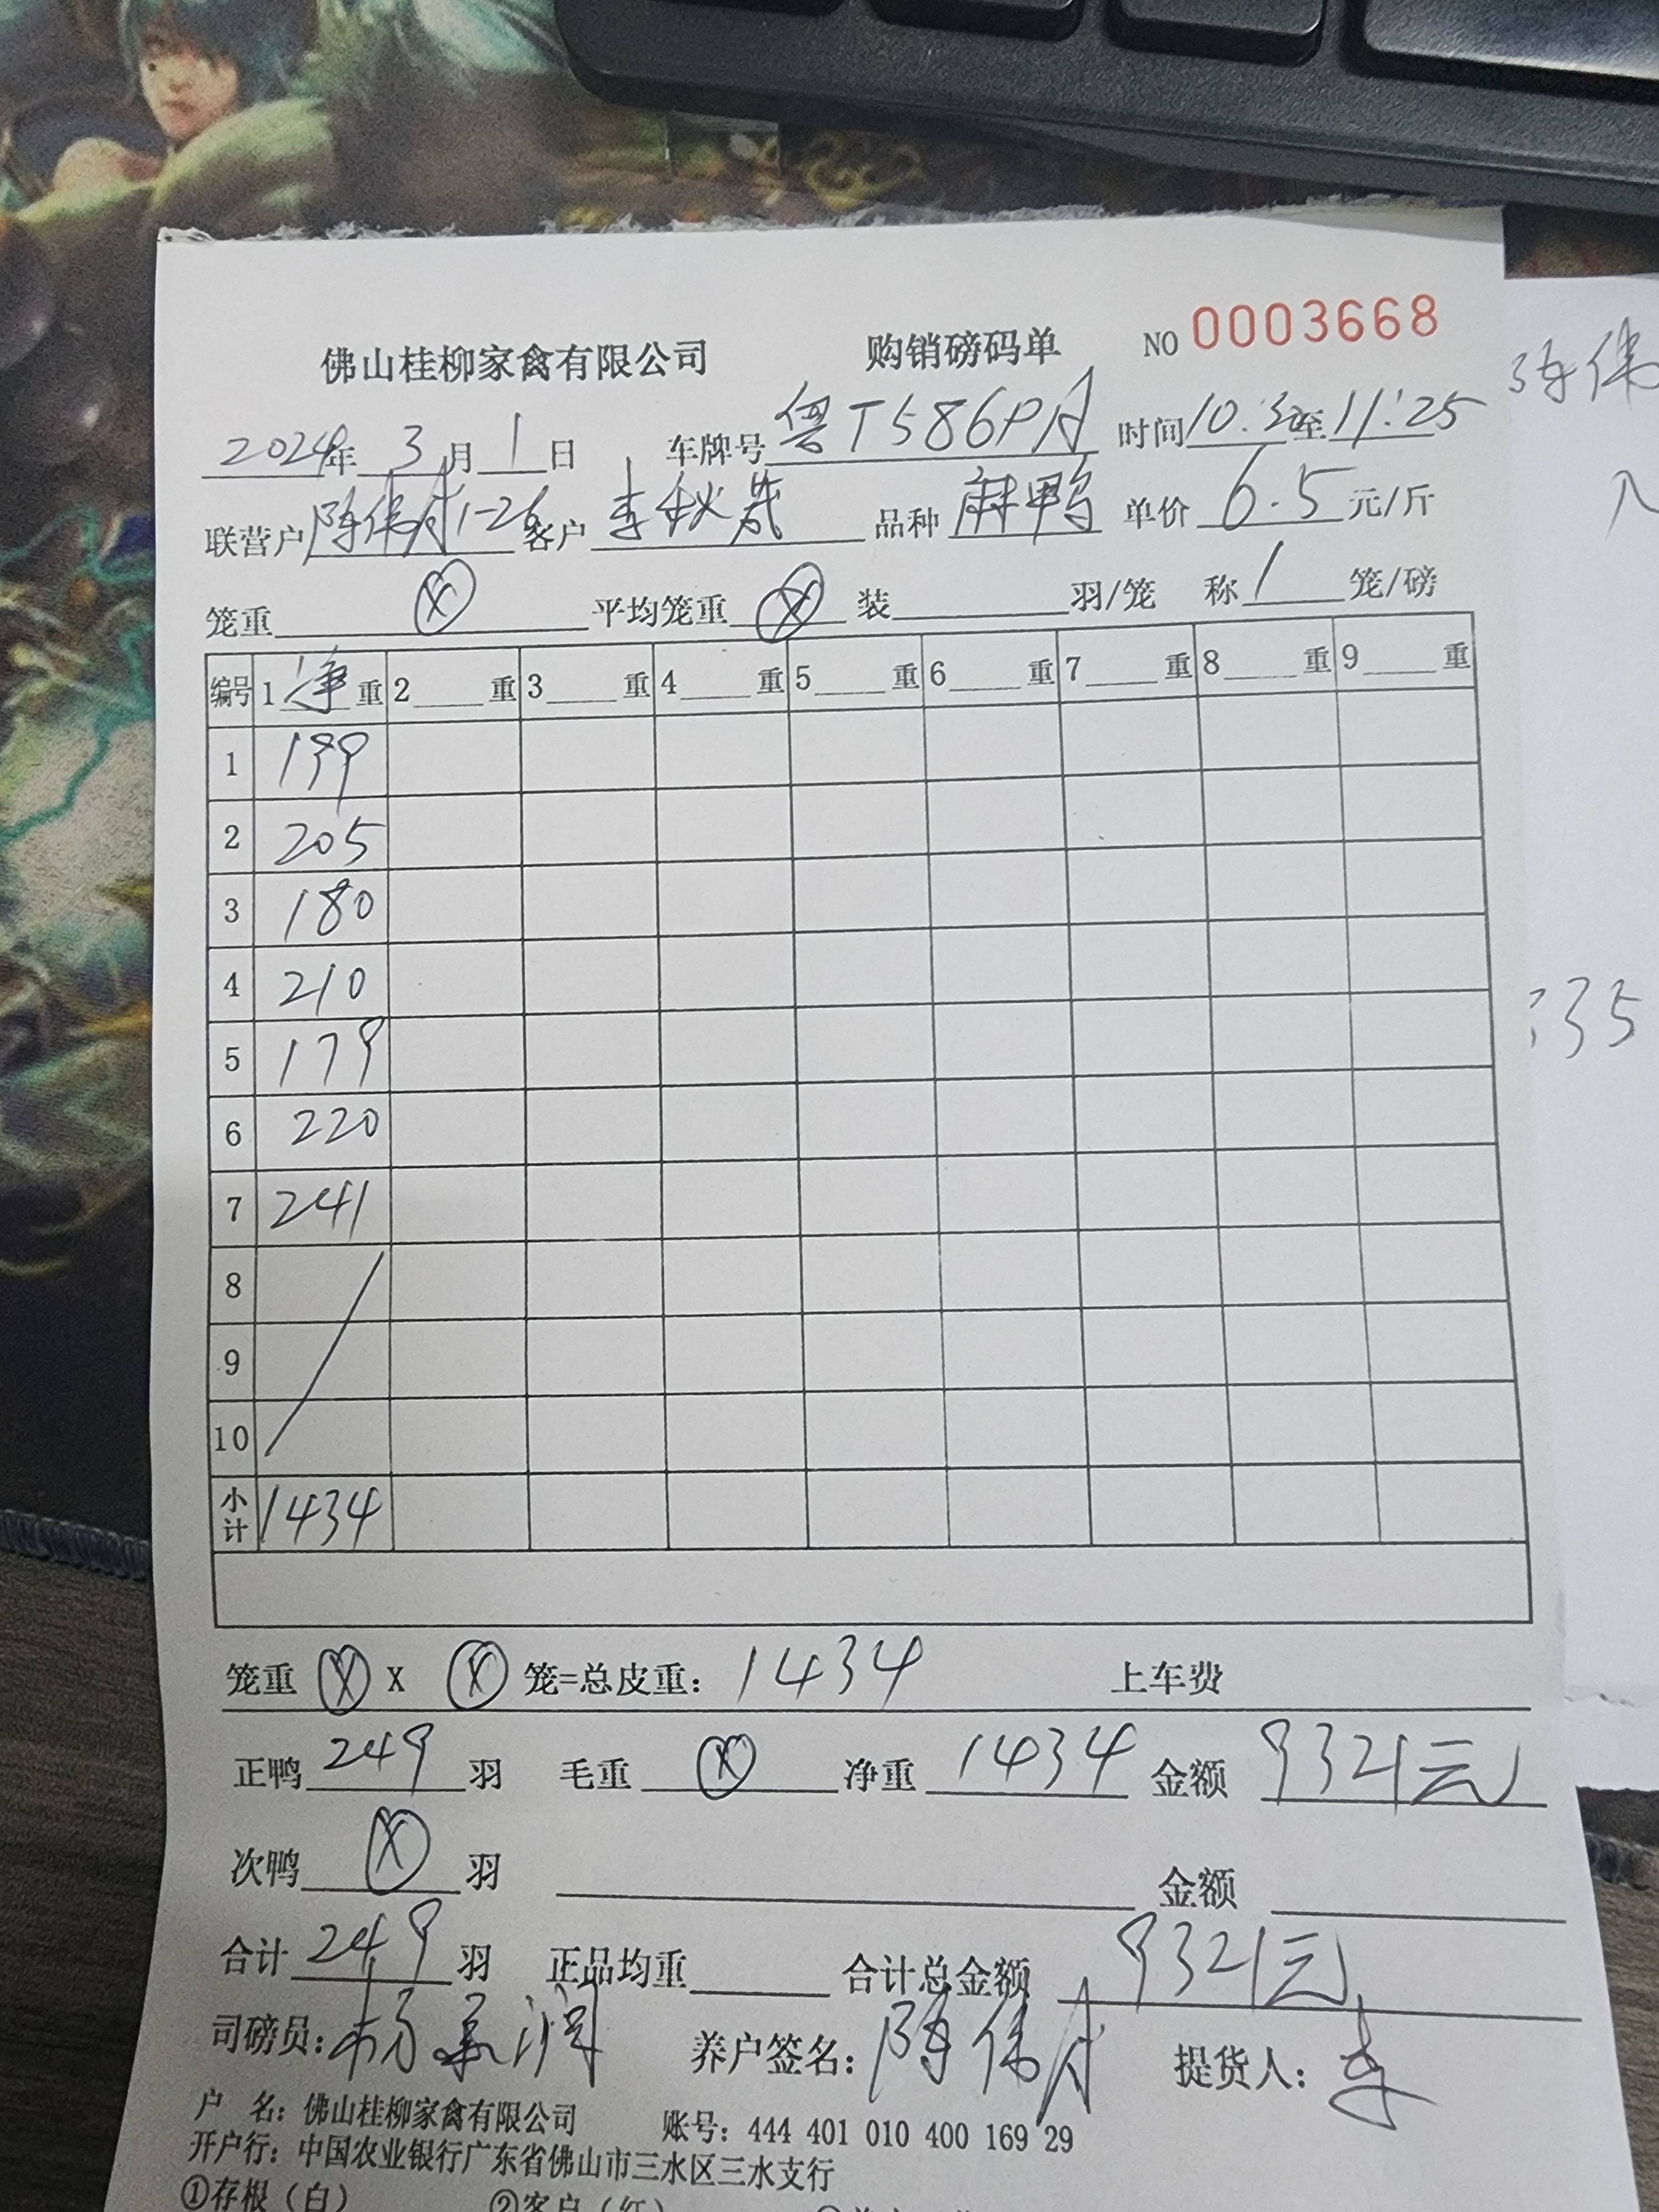 佛山桂柳家禽有限公司 购销磅码单 NO 0003668
2024年 3月 1日 车牌号 粤T586PA 时间 10:30至11:25
联营户 陈伟月1-26 客户 李秋 品种 麻鸭 单价 6.5 元/斤
笼重 ⓧ 平均笼重 ⓧ 装 羽/笼 称 1 笼/磅
编号 1 净 重 2 重 3 重 4 重 5 重 6 重 7 重 8 重 9 重
1 199
2 205
3 180
4 210
5 179
6 220
7 241
8
9
10
小计 1434
笼重 ⓧ X ⓧ 笼=总皮重: 1434 上车费
正鸭 249 羽 毛重 ⓧ 净重 1434 金额 9321元
次鸭 ⓧ 羽 金额
合计 249 羽 正品均重 合计总金额 9321元
司磅员: 杨 润 养户签名: 陈伟月 提货人: 李
户 名: 佛山桂柳家禽有限公司 账号: 444 401 010 400 169 29
开户行: 中国农业银行广东省佛山市三水区三水支行
①存根（白） ②客户（红）
伟
35